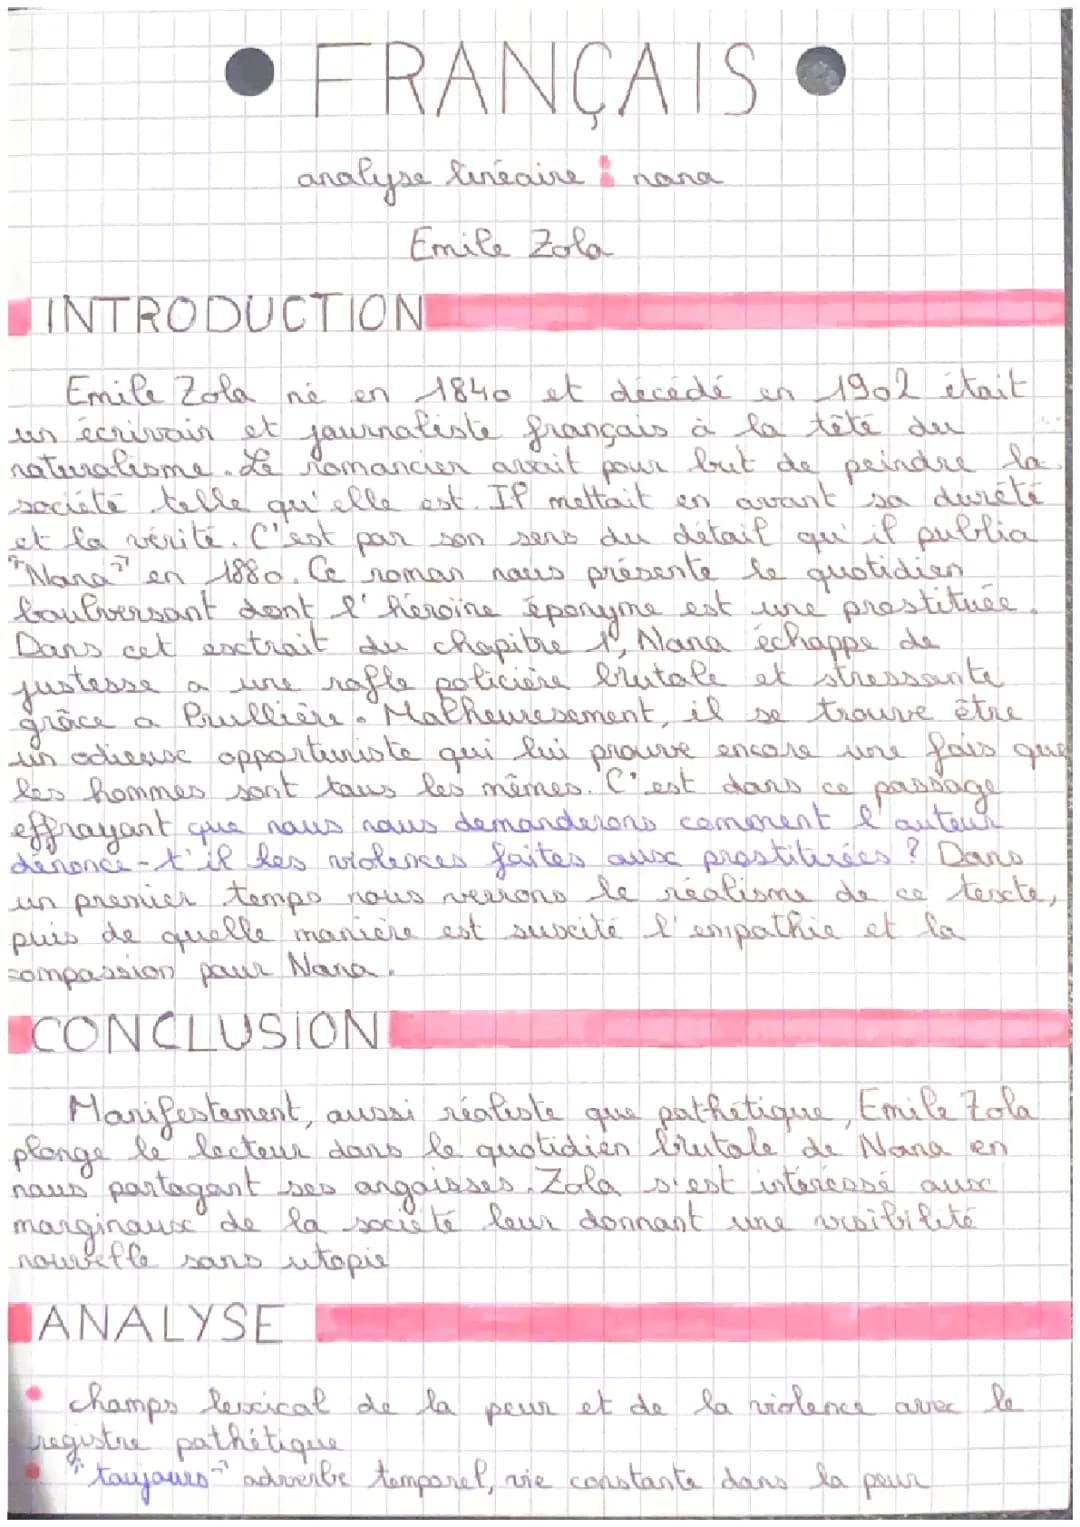 • FRANÇAIS •
analyse linéaire : nana
Emile Zola
INTRODUCTION
Emile Zola né en 1840 et décédé en 1902 était
un écrivain et journaliste français à la tête du
naturalisme. Le romancier avait pour but de peindre la
société telle qu'elle est. Il mettait en avant sa dureté
et la vérité. C'est par son sens du détail qu'il publia
"Nana" en 1880. Ce roman nous présente le quotidien
boulversant dont l'héroïne éponyme est une prostituée.
Dans cet extrait du chapitre 1, Nana échappe de
justesse a une rafle policière brutale et stressante
grâce a Prullière. Malheuresement, il se trouve être
un odieux opportuniste qui lui prouve encore une fois que
les hommes sont tous les mêmes. C'est dans ce passage
effrayant que nous nous demanderons comment l'auteur
dénonce-t'il les violences faites aux prostituées ? Dans
un premier temps nous verrons le réalisme de ce texte,
puis de quelle manière est suscité l'empathie et la
compassion pour Nana.
CONCLUSION
Manifestement, aussi réaliste que pathétique, Emile Zola
plonge le lecteur dans le quotidien brutale de Nana en
nous partagant ses angoisses. Zola s'est intéressé aux
marginaux de la société leur donnant une visibilité
nouvelle sans utopie
ANALYSE
• champs lexical de la peur et de la violence avec le
registre pathétique
• "toujours" adverbe temporel, vie constante dans la peur